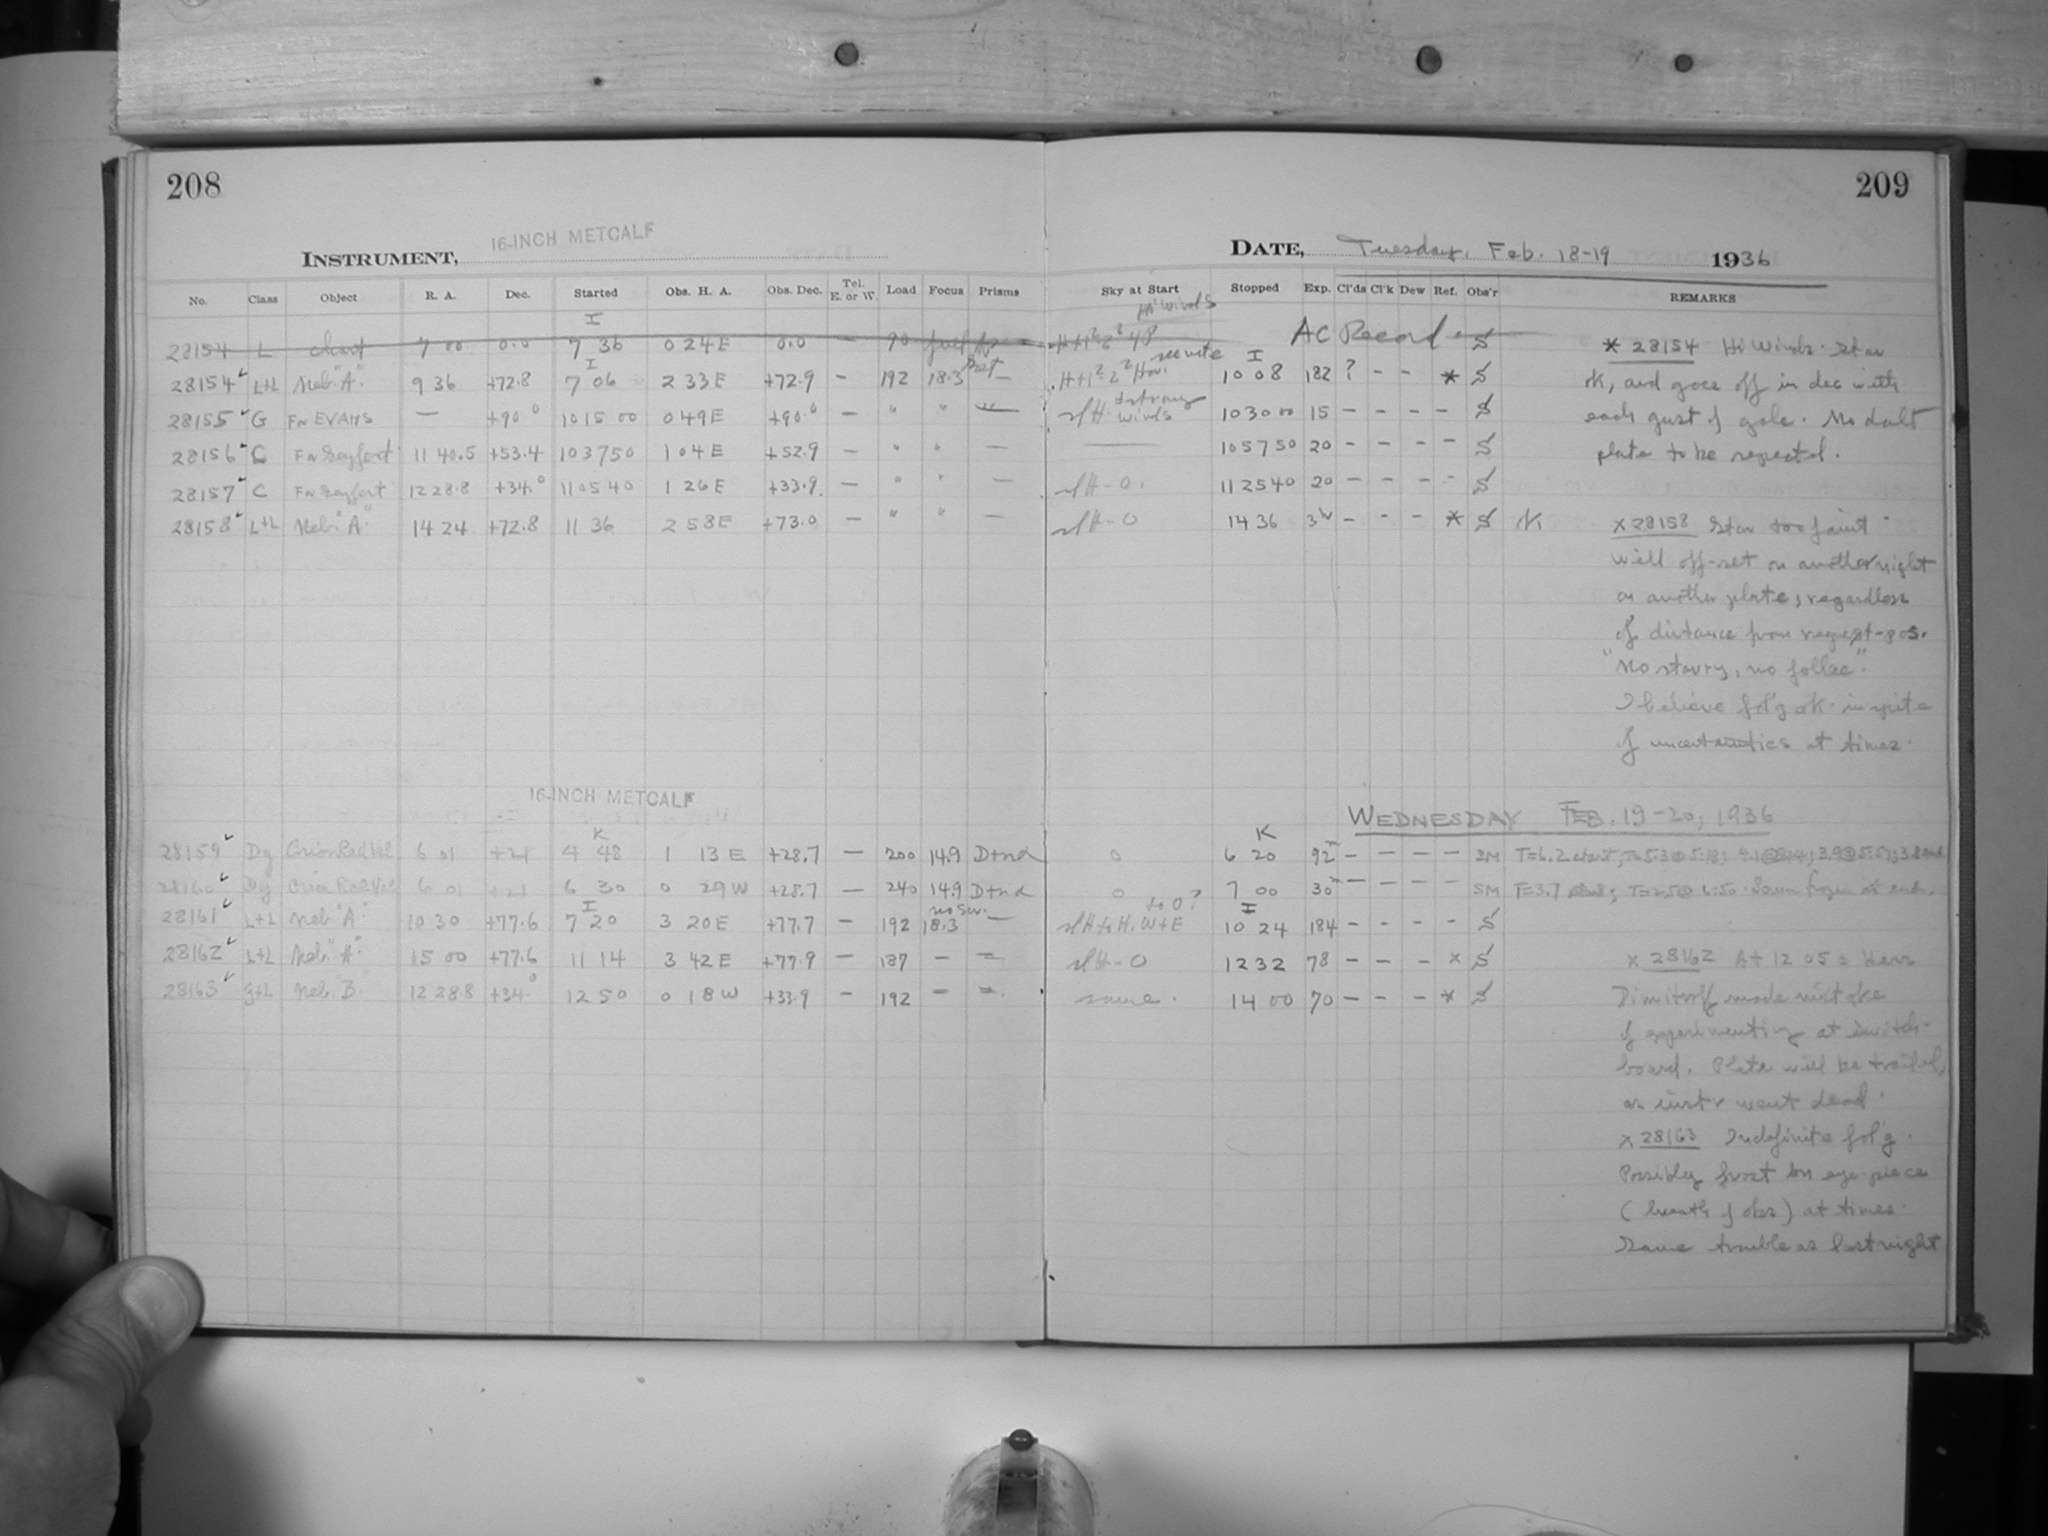 208
209
INSTRUMENT, 16-INCH METCALF
DATE, Tuesday, Feb. 18-19 1936
No. Class Object R. A. Dec. Started Obs. H. A. Obs. Dec. Tel. E. or W. Load Focus Prisms Sky at Start Stopped Exp. Cl'ds Cl'k Dew Ref. Obs'r REMARKS
Hi Winds
I
28154 L chart 7 00 0.0 7 36 0 24 E 0.0 — 90 AC Record S
I I
28154 L+L Neb. "A" 9 36 +72.8 7 06 2 33 E +72.9 — 192 18.3 — 10 08 182 ? - - * S
28155 G For EVANS — +90° 10 15 00 0 49 E +90.° — " " — slH strong winds 10 30 00 15 — — — — S
28156 C For Seyfert 11 40.5 +53.4 10 37 50 1 04 E +52.9 — " " — — 10 57 50 20 — — — — S
28157 C For Seyfert 12 28.8 +34.° 11 05 40 1 26 E +33.9 — " " — slH-0. 11 25 40 20 — — — — S
28158 L+L Neb. "A" 14 24 +72.8 11 36 2 58 E +73.0 — " " — slH-0 14 36 3h — — — * S
* 28154 Hi Winds. Star
ok, and goes off in dec with
each gust of gale. No doubt
plate to be rejected.
x 28158 Star too faint
Will off-set on another night
on another plate, regardless
of distance from request-pos.
"No starry, no follee".
I believe fol'g ok in spite
of uncertainties at times.
16-INCH METCALF
WEDNESDAY FEB. 19-20, 1936
K K
28159 Dg Orion Red Vel 6 01 +21 4 48 1 13 E +28.7 — 200 14.9 D+nd 0 6 20 92m — — — — SM
28160 Dg Orion Red Vel 6 01 +21 6 30 0 29 W +28.7 — 240 14.9 D+nd 0 7 00 30m — — — — SM
I to 0? I
28161 L+L Neb "A" 10 30 +77.6 7 20 3 20 E +77.7 — 192 18.3 — slH to H. W+E 10 24 184 — — — — S
28162 L+L Neb. "A" 15 00 +77.6 11 14 3 42 E +77.9 — 187 — — slH-0 12 32 78 — — — x S
28163 g+L Neb. B. 12 28.8 +34.° 12 50 0 18 W +33.9 — 192 — — same. 14 00 70 — — — * S
x 28162 At 12 05 ±
Dimitroff made mistake
of experimenting at switch-
board. Plate will be trailed,
as instr went dead.
x 28163 Indefinite fol'g.
Possibly frost on eye-piece
(breath of obs) at times.
Same trouble as last night